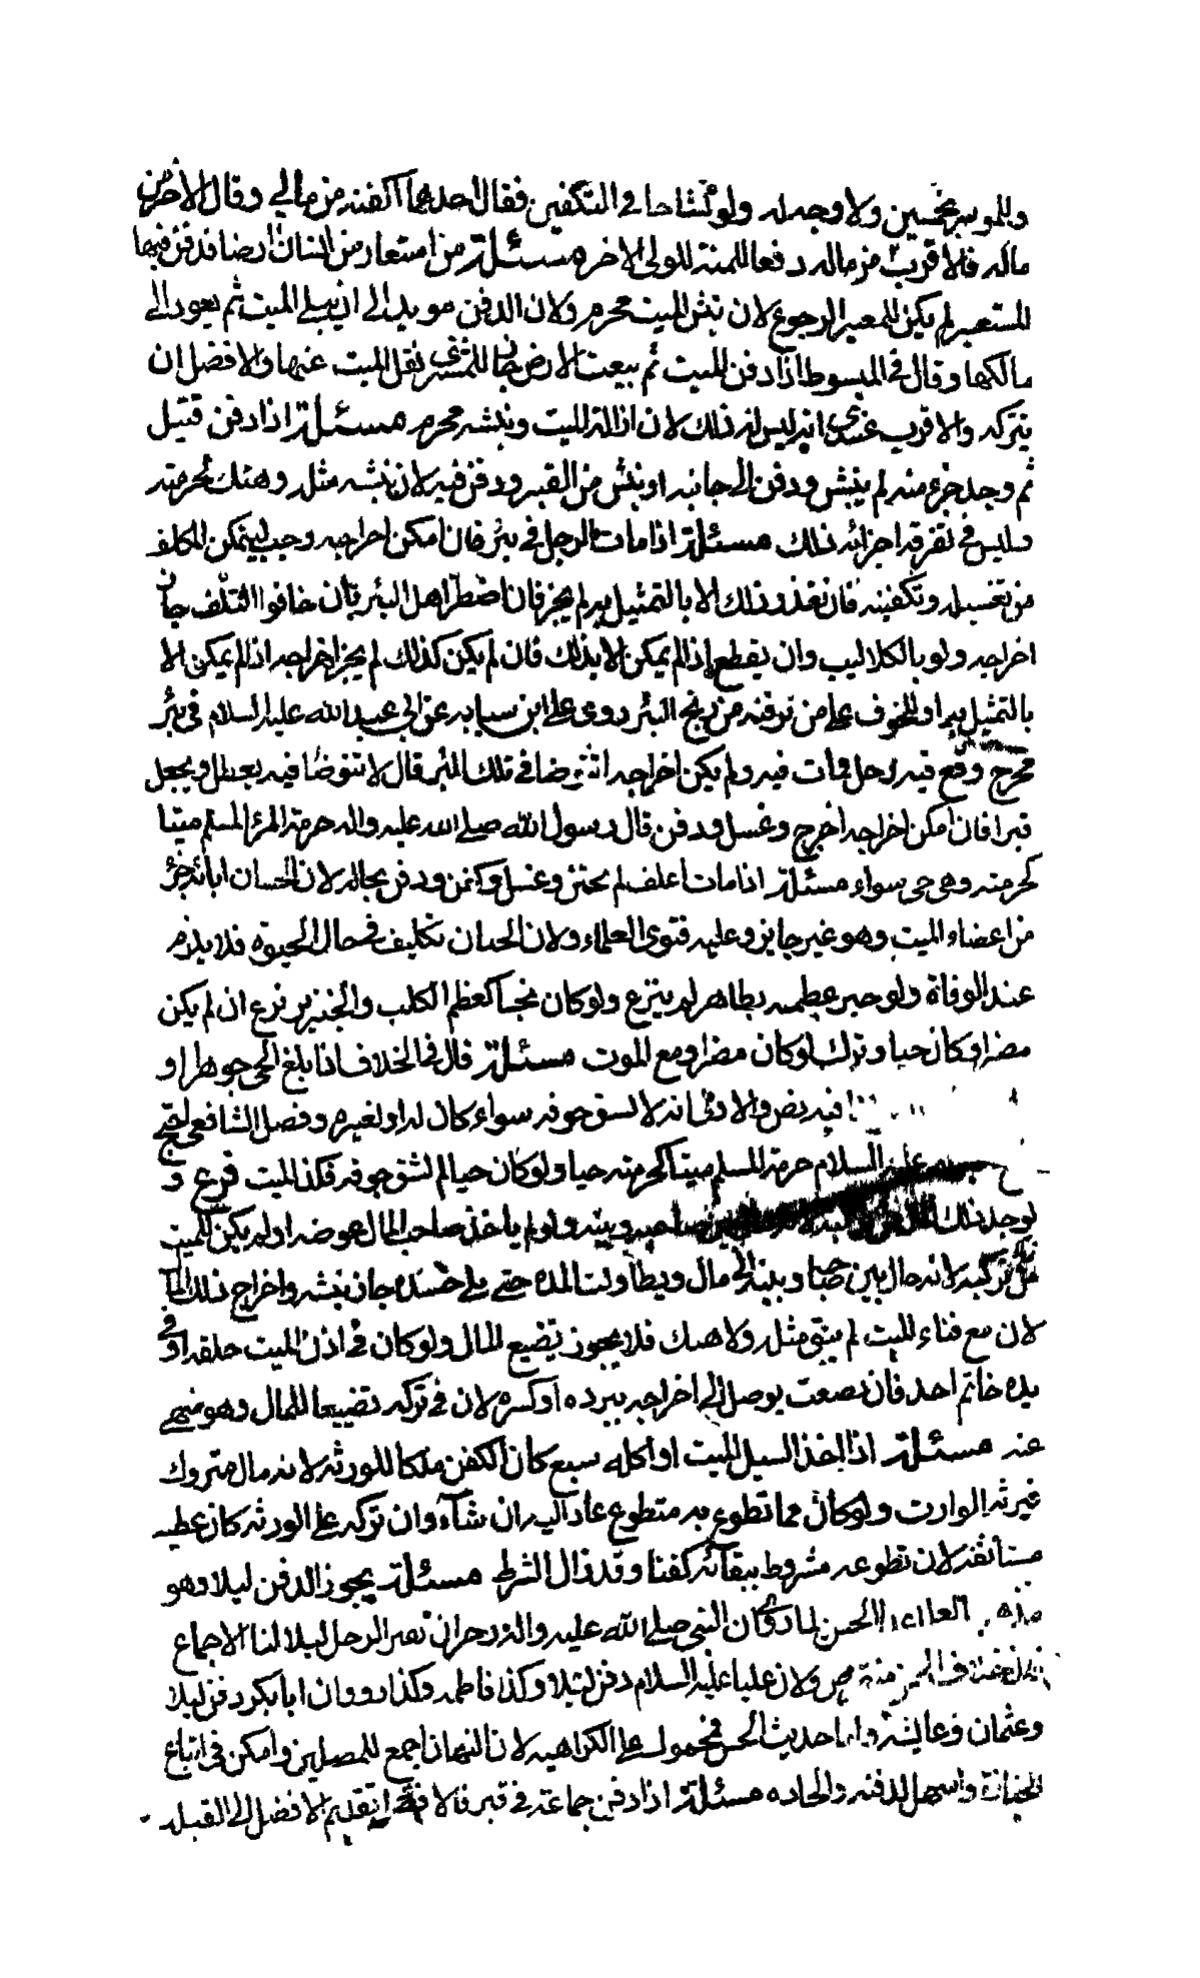 وللموسر تحسين ولا وجه له ولو تشاحا في التكفين فقال احدهما اكفنه من مالي وقال الاخر من
ماله فالاقرب من ماله دفعا للمنة للولي الاخر مسئلة من استعار من انسان ارضا فدفن فيها
المستعير لم يكن للمعير الرجوع لان نبش الميت محرم ولان الدفن مويد الى ان يبلى الميت ثم يعود الى
مالكها وقال في المبسوط اذا دفن الميت ثم بيعت الارض جاز للمشتري نقل الميت عنها والافضل ان
يتركه والاقرب عندي انه ليس له ذلك لان ازالة الميت ونبشه محرم مسئلة اذا دفن قتيل
ثم وجد جزء منه لم ينبش ودفن الى جانبه او نبش من القبر ودفن فيه لان نبشه مثله وهتك لحرمته
وليس في تفرقة اجزائه ذلك مسئلة اذا مات الرجل في بئر فان امكن اخراجه وجب ليتمكن المكلف
من تغسيله وتكفينه فان تعذر ذلك الا بالتمثيل به لم يجز فان اضطر اهل البئر بان خافوا التلف جاز
اخراجه ولو بالكلاليب وان يقطع اذا لم يمكن الا بذلك فان لم يكن كذلك لم يجز اخراجه اذا لم يمكن الا
بالتمثيل به او للخوف على من نوفنه من ريح البئر روى علا ابن سيابه عن ابي عبد الله عليه السلام في بئر
مخرج وقع فيه رجل فمات فيه ولم يكن اخراجه اتتوضا في تلك البئر قال لا تتوضا فيه يعطل ويجعل
قبرا فان امكن اخراجه اخرج وغسل ودفن قال رسول الله صلى الله عليه واله حرمة المرء المسلم ميتا
كحرمته وهو حي سواء مسئلة اذا مات اغلف لم يختن وغسل وكفن ودفن بحاله لان الختان ابانة جزء
من اعضاء الميت وهو غير جايز وعليه فتوى العلماء ولان الختان تكليف في حال الحيوة فلا يلزم
عند الوفاة ولو جبر عظمه بطاهر لم ينزع ولو كان نجسا كعظم الكلب والخنزير نزع ان لم يكن
مضرا وكان حيا وترك لو كان مضرا ومع الموت مسئلة قال في الخلاف اذا بلغ الحي جوهرا او
فيه نص والاولى انه لا يشق جوفه سواء كان له او لغيره وفصل الشافعي لنج
عليه السلام حرمة المسلم ميتا كحرمته حيا ولو كان حيا لم يشق جوفه فكذا الميت فرع و
لو وجد ذلك صاحبه وبينه ولو لم ياخذ صاحب المال عوضه او لم يكن للميت
تركه لانه حال بين وبينه الى مال ويطاولت المدة حتى بلي جسده جاز نبشه واخراج ذلك المال
لان مع فناء الميت لم يبق مثله ولا هتك فلا يجوز تضييع المال ولو كان في اذن الميت حلقه او في
يده خاتم اخذ فان صعب يوصل الى اخراجه ببرده او كسره لان في تركه تضييعا للمال وهو منهي
عنه مسئلة اذا اخذ السيل الميت او اكله سبع كان الكفن ملكا للورثة لانه مال متروك
فيرثه الوارث ولو كان مما تطوع به متطوع عاد اليه ان شاء وان تركه على الورثة كان عطيه
مستانفة لان تطوعه مشروط ببقائه كفنا وقد زال الشرط مسئلة يجوز الدفن ليلا وهو
العلماء الا الحسن لما روي ان النبي صلى الله عليه واله زجر ان يقبر الرجل ليلا لنا الاجماع
ولان عليا عليه السلام دفن ليلا وكذا فاطمه وكذا رووا ان ابا بكر دفن ليلا
وعثمان وعايشة واما حديث الحسن فمحمول على الكراهيه لان النهار اجمع للمصلين وامكن في اتباع
الجنازة واسهل لدفنه والحاده مسئلة اذا دفن جماعة في قبر فالافضل تقديم الافضل الى القبله